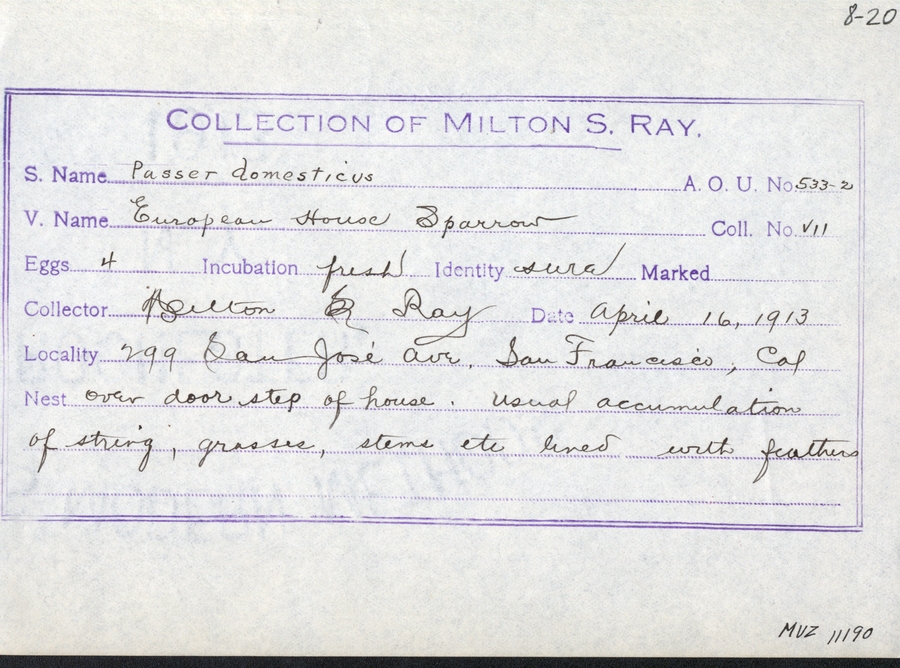 8-20
COLLECTION OF MILTON S. RAY.
S. Name Passer domesticus A. O. U. No. 533-2
V. Name European House Sparrow Coll. No. VII
Eggs 4 Incubation fresh Identity sure Marked
Collector Milton S Ray Date April 16, 1913
Locality 299 San José Ave, San Francisco, Cal
Nest over door step of house. Usual accumulation
of string, grasses, stems etc lined with feathers
MVZ 11190